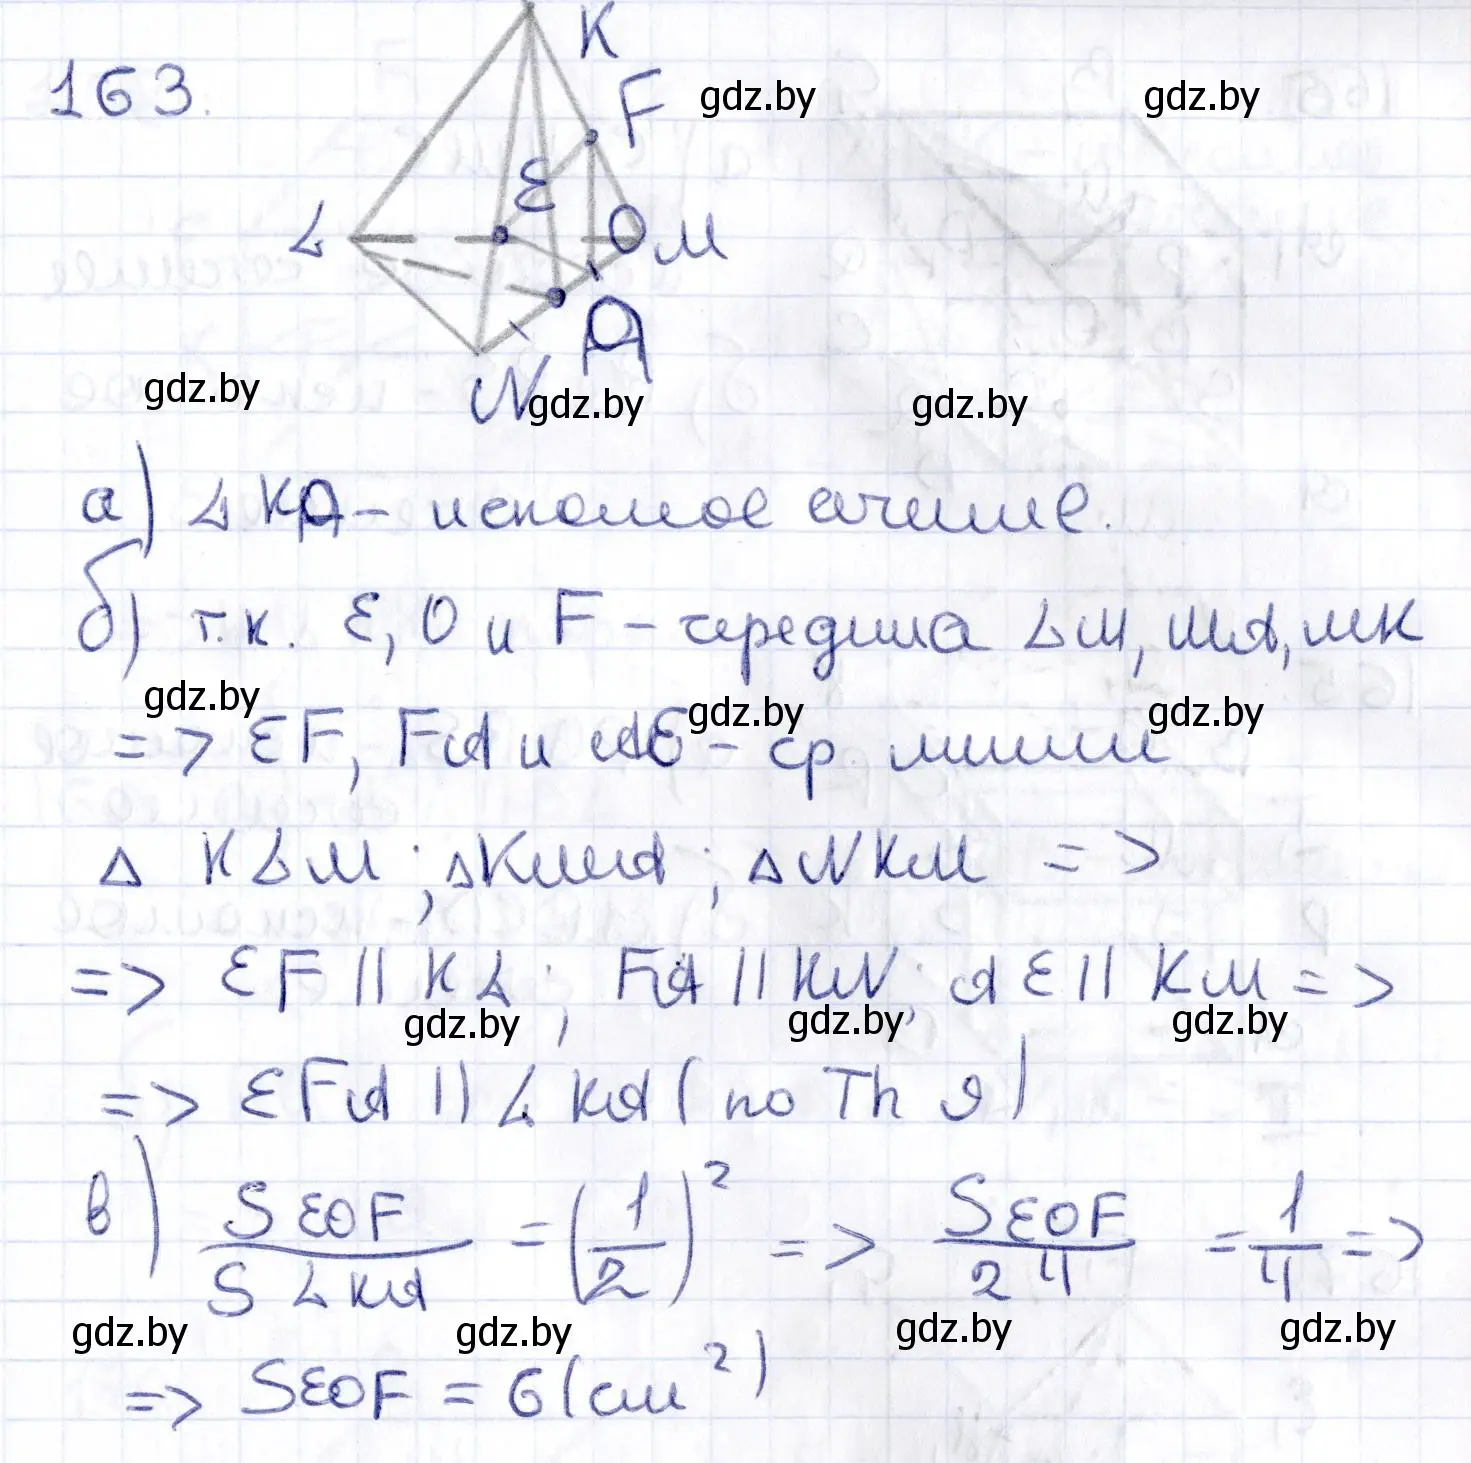 K
163.
F
gdz.by gdz.by
Ɛ
L O M
A
N
gdz.by gdz.by gdz.by
а) LKA – искомое сечение.
б) т.к. Ɛ, O и F – середина LM, MA, MK
gdz.by gdz.by gdz.by
=> ƐF, FA и AƐ – ср. линии
Δ KLM; ΔKMA; ΔNKM =>
=> ƐF || KL; FA || KN; AƐ || KM =>
gdz.by gdz.by gdz.by
=> ƐFA || LKA (по Th 9)
в) SƐOF / SLKA = (1/2)² => SƐOF / 24 = 1/4 =>
gdz.by gdz.by gdz.by gdz.by
=> SƐOF = 6 (см²)